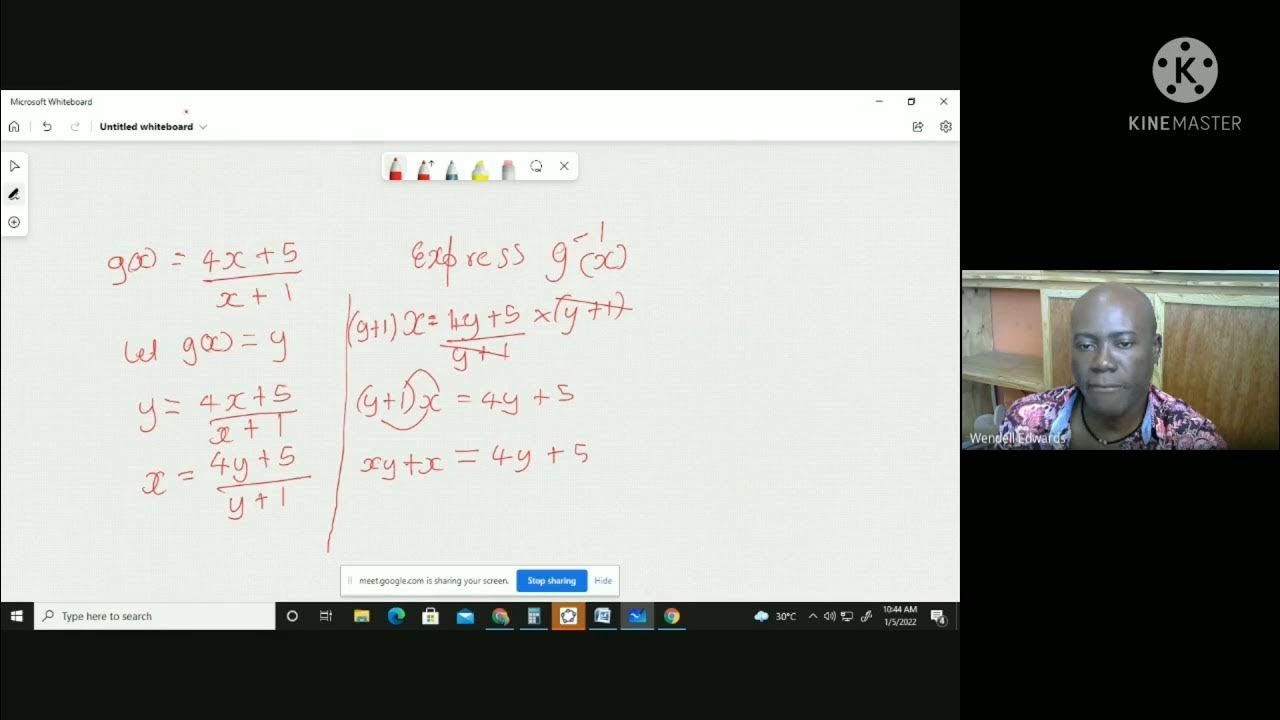 KINEMASTER
Microsoft Whiteboard
Untitled whiteboard
g(x) = 4x + 5
x + 1
Let g(x) = y
y = 4x + 5
x + 1
x = 4y + 5
y + 1
Express g⁻¹(x)
(y+1) x = 4y + 5 × (y + 1)
y + 1
(y+1)x = 4y + 5
xy + x = 4y + 5
Wendell Edwards
meet.google.com is sharing your screen. Stop sharing Hide
Type here to search
30°C
10:44 AM
1/5/2022
4